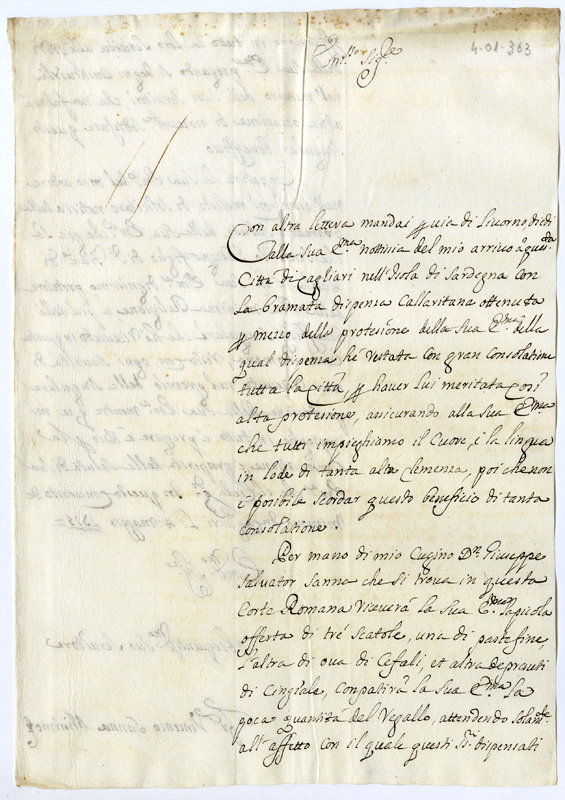 4-01-363
Em.mo Sig.re
Con altra lettera mandai p via di Livorno diedi
alla Sua E.ma nottisia del mio arrivo à questa
Città di Cagliari nell'Isola di Sardegna con
la bramata dispensa Callaritana ottenuta
p mezio della protesione della Sua E.ma della
qual dispensa hè restata con gran consolatine
tutta la Città p haver lui meritata così
alta protesione, assicurando alla Sua E.ma
che tutti impieghiamo il Cuore, i la lingua
in lode di tanta alta Clemenza, poi che non
i posibile scordar questo beneficio di tanta
consolatione.
Per mano di mio Cugino Dn. Giuseppe
Salvator Sanna che si trova in questa
Corte Romana riceverà la Sua E.ma la picola
offerta di tré Scatole, una di paste fine,
l'altra di ova di Cefali, et altra de prauti
di Cingiale, conpatirà la Sua E.ma la
poca quantità del Regallo, attendendo solam.te
all'affetto con il quale questi S.ri dispensati